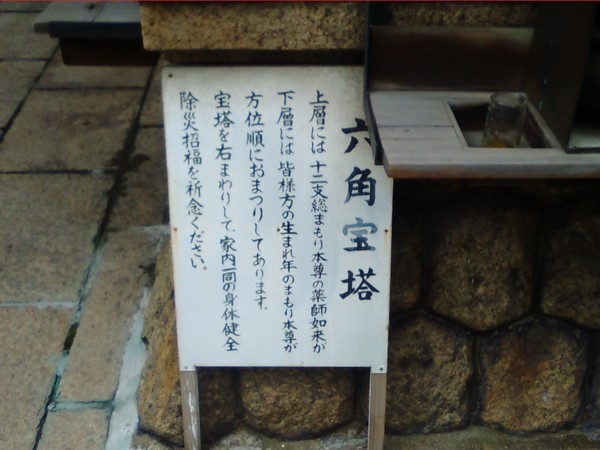 六角宝塔
上層には十二支総まもり本尊の薬師如来が
下層には皆様方の生まれ年のまもり本尊が
方位順におまつりしてあります。
宝塔を右まわりして、家内一同の身体健全
除災招福を祈念ください。